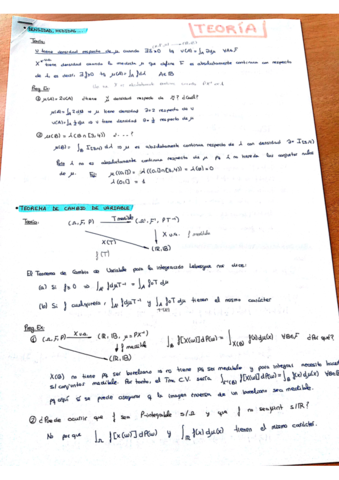 TEORÍA
• DENSIDAD, MEDIDAS
Teoría:
ν tiene densidad respecto de μ cuando ∃ f≥0 ν(A) = ∫_A f dμ ∀A∈F
X tiene densidad cuando la medida μ que define F es absolutamente continua con respecto
de λ es decir ∃ f≥0 μ(A) = ∫_A f dλ A∈B
Preg. Ex:
① μ(A) = 2ν(A) ¿Tiene densidad respecto de ?
μ(A) = ∫_A 2 dν ⇒ μ tiene densidad f=2 respecto de ν
ν(A) = ∫_A ½ dμ ⇒ ν tiene densidad f=½ respecto de μ
② μ(B) = λ(B∩[3,4]) ...?
μ(B) = ∫_B I[3,4] dλ ⇒ μ es absolutamente continua respecto de λ con densidad f = I[3,4]
Pero λ no es absolutamente continua respecto de μ pq λ no hereda los conjuntos nulos
de μ. Ej: μ((0,1)) = λ((0,1)∩[3,4]) = λ(∅) = 0
λ(0,1) = 1
• TEOREMA DE CAMBIO DE VARIABLE
Teoría:
(Ω, F, P) T medible (Ω', F', PT⁻¹)
X(T)
f(T)
X v.a. f medible
(R, B)
El Teorema de Cambio de Variable para la integración Lebesgue nos dice:
(a) Si f≥0 ⇒
(b) Si f cualquiera, y tienen el mismo carácter
Preg. Ex:
① (Ω, F, P) X v.a. (R, B, μ=PX⁻¹)
f medible
(R, B)
∫_B f[X(ω)] dP(ω) = ∫_X(B) f(x) dμ(x) ∀B∈F ¿Por qué?
X(B) no tiene pq ser boreliano o no tiene pq ser medible y para integrar necesito hacerlo
s/ conjuntos medibles. Por tanto, el Tma C.V. sería ∫_X⁻¹(B) f[X(ω)] dP(ω) = ∫_B f(x) dμ(x)
pq aquí sí se puede asegurar q la imagen inversa de un boreliano sea medible.
② ¿Puede ocurrir que f sea P-integrable s/Ω y que f no sea μ-int s/R?
No porque ∫_Ω f[X(ω)] dP(ω) y ∫_R f(x) dμ(x) tienen el mismo carácter.